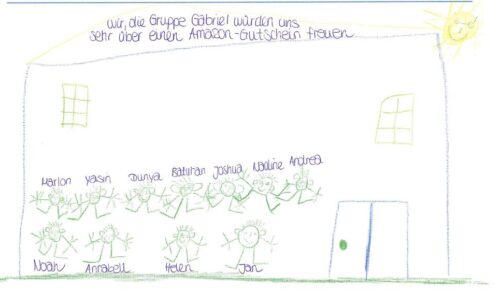 wir, die Gruppe Gabriel würden uns
sehr über einen Amazon-Gutschein freuen
Marlon Yasin Dunya Batuhan Joshua Nadine Andrea
Noah Annabell Helen Jan